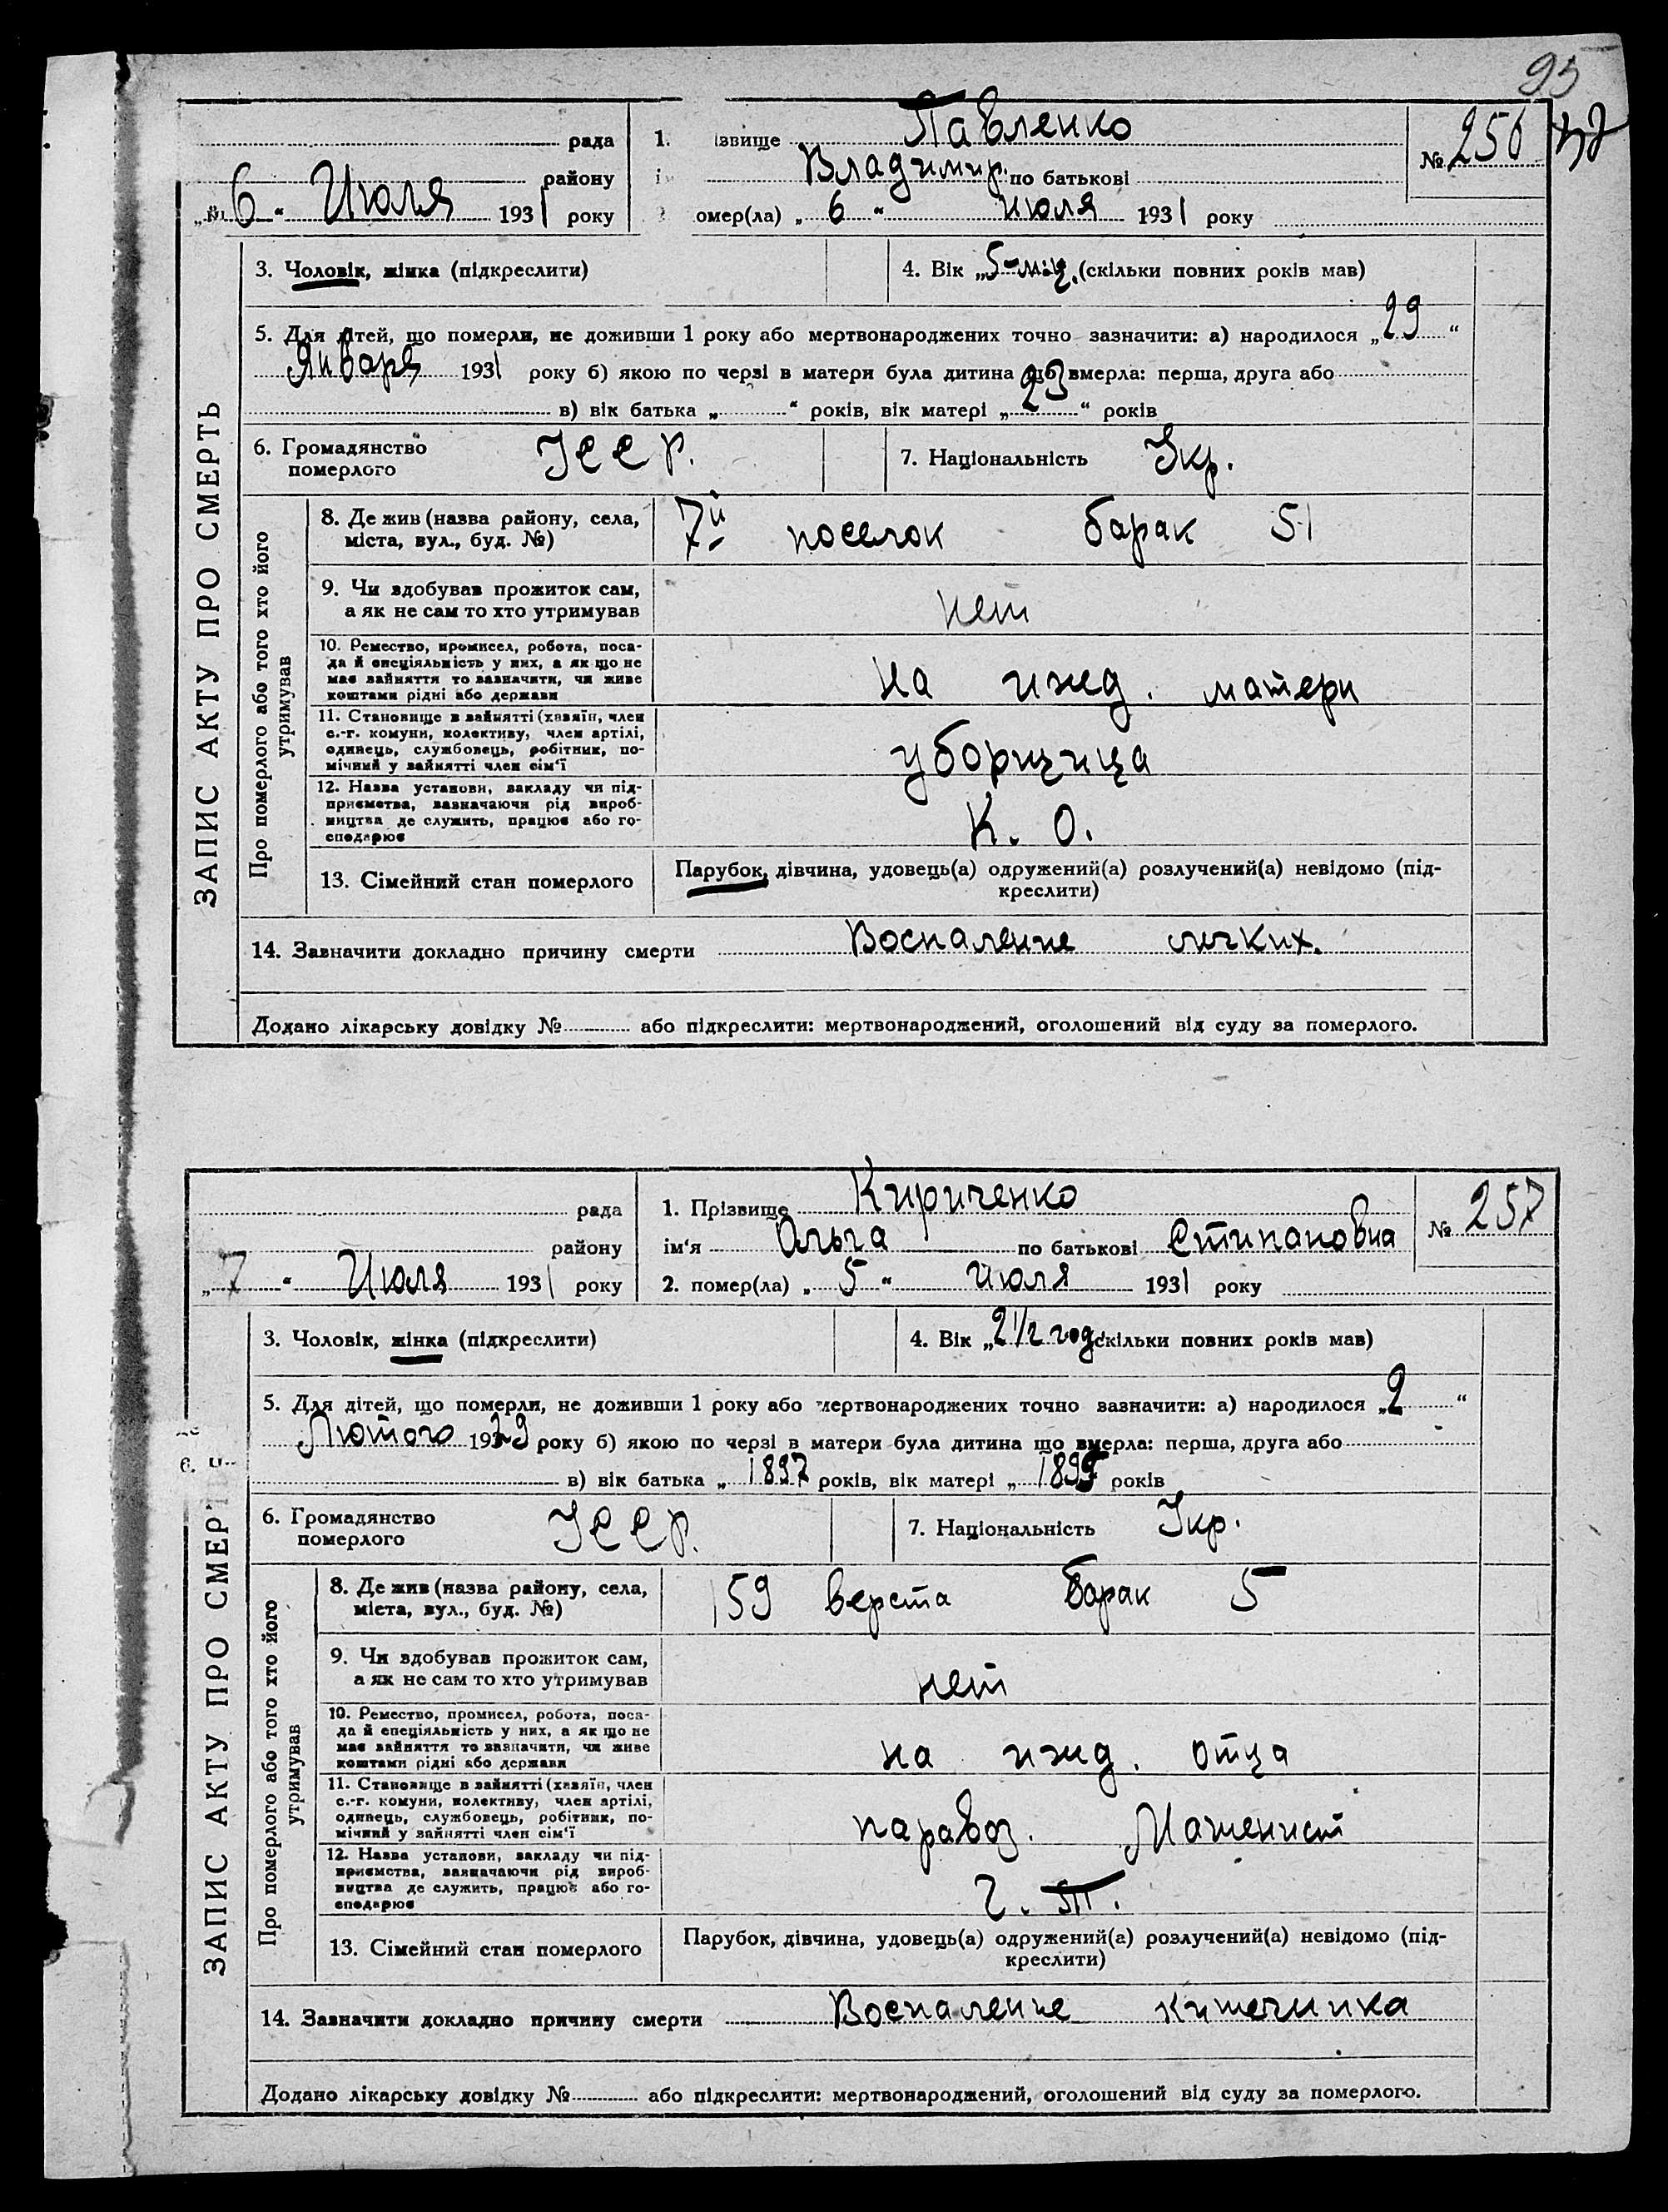 95
рада
району
„ 6 “ Июля 1931 року
1. ізвище Павленко
Владимир. по батькові
омер(ла) „ 6 “ июля 1931 року
№ 256
ЗАПИС АКТУ ПРО СМЕРТЬ
3. Чоловік, жінка (підкреслити)
4. Вік „5-мц. (скільки повних років мав)
5. Для дітей, що померли, не доживши 1 року або мертвонароджених точно зазначити: а) народилося „ 29 “
Января 1931 року б) якою по черзі в матери була дитина що вмерла: перша, друга або
в) вік батька „ “ років, вік матері „ 23 “ років
6. Громадянство
померлого
УССР.
7. Національність Укр.
Про померлого або того хто його
утримував
8. Де жив (назва району, села,
міста, вул., буд. №)
7й поселок барак 51
9. Чи здобував прожиток сам,
а як не сам то хто утримував
нет
10. Ремество, промисел, робота, поса-
да й спеціяльність у них, а як що не
має зайняття то зазначити, чи живе
коштами рідні або держави
на ижд. матери
11. Становище в зайнятті (хазяїн, член
с.-г. комуни, колективу, член артілі,
одинець, службовець, робітник, по-
мічний у зайнятті член сім'ї
уборщица
12. Назва установи, закладу чи під-
приємства, зазначаючи рід вироб-
ництва де служить, працює або го-
сподарює
К. О.
13. Сімейний стан померлого
Парубок, дівчина, удовець(а) одружений(а) розлучений(а) невідомо (під-
креслити)
14. Зазначити докладно причину смерти Воспаление личких.
Додано лікарську довідку № або підкреслити: мертвонароджений, оголошений від суду за померлого.
рада
району
„ 7 “ Июля 1931 року
1. Прізвище Кириченко
ім'я Ольга по батькові Стипановна
2. помер(ла) „ 5 “ июля 1931 року
№ 257
ЗАПИС АКТУ ПРО СМЕР
3. Чоловік, жінка (підкреслити)
4. Вік „2 1/2 год. скільки повних років мав)
5. Для дітей, що померли, не доживши 1 року або мертвонароджених точно зазначити: а) народилося „ 2 “
Лютого 1929 року б) якою по черзі в матери була дитина що вмерла: перша, друга або
в) вік батька „ 1897 років, вік матері „ 1899 років
6. Громадянство
померлого
УССР.
7. Національність Укр.
Про померлого або того хто його
утримував
8. Де жив (назва району, села,
міста, вул., буд. №)
159 верста барак 5
9. Чи здобував прожиток сам,
а як не сам то хто утримував
нет
10. Ремество, промисел, робота, поса-
да й спеціяльність у них, а як що не
має зайняття то зазначити, чи живе
коштами рідні або держави
на ижд. отца
11. Становище в зайнятті (хазяїн, член
с.-г. комуни, колективу, член артілі,
одинець, службовець, робітник, по-
мічний у зайнятті член сім'ї
паравоз. Машенист
12. Назва установи, закладу чи під-
приємства, зазначаючи рід вироб-
ництва де служить, працює або го-
сподарює
Ч. Т.
13. Сімейний стан померлого
Парубок, дівчина, удовець(а) одружений(а) розлучений(а) невідомо (під-
креслити)
14. Зазначити докладно причину смерти Воспаление кишечника
Додано лікарську довідку № або підкреслити: мертвонароджений, оголошений від суду за померлого.